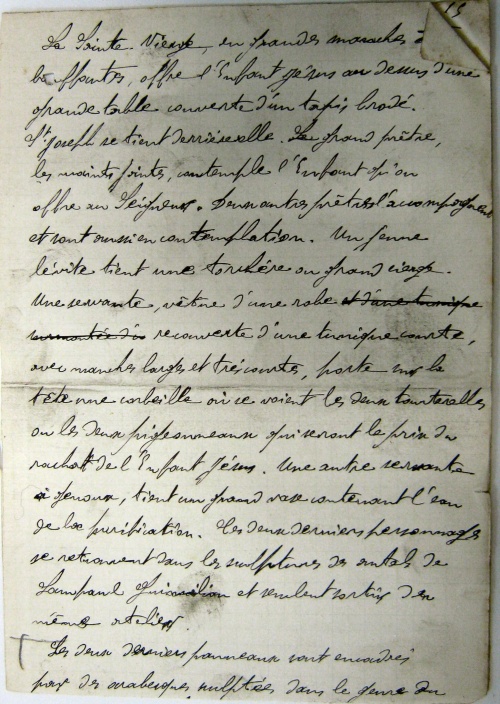 15
La Sainte Vierge, en grandes manches à
bouffantes, offre l'Enfant Jésus au dessus d'une
grande table couverte d'un tapis brodé.
St Joseph se tient derrière elle. Le grand prêtre,
les mains jointes, contemple l'Enfant qu'on
offre au Seigneur. Deux autres prêtres l'accompagnent
et sont aussi en contemplation. Un jeune
lévite tient une torchère ou grand cierge.
Une servante, vêtue d'une robe et d'une tunique
surmontée d'un recouverte d'une tunique courte,
avec manches larges et très courtes, porte sur la
tête une corbeille où se voient les deux tourterelles
ou les deux pigeonneaux qui seront le prix du
rachat de l'Enfant Jésus. Une autre servante
à genoux, tient un grand vase contenant l'eau
de la purification. Ces deux derniers personnages
se retrouvent dans les sculptures des autels de
Lampaul Guimiliau et semblent sortir des
même atelier.
Les deux derniers panneaux sont encadrés
par des arabesques sculptées dans le genre du